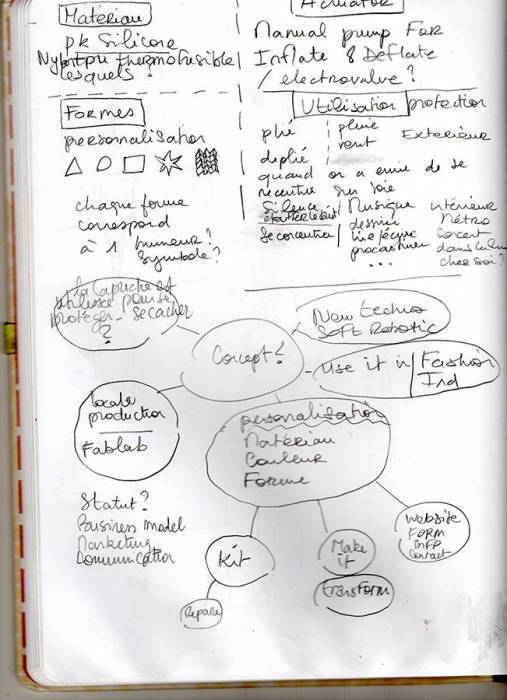 Matériau
pk Silicone
Nylon tpu thermofusible
lesquels?
Formes
personalisation
chaque forme
correspond
à 1 humeur?
symbole?
Actuator
Manual pump For
Inflate & Deflate
/ electrovalve?
Utilisation protection
plié pluie Exterieur
vent
deplié
quand on a envie de se
recentrer sur soie
Silence Musique interieur
étouffer le bruit dessine Métro
se concentrer lire/écrire Concert
procastiner dans la rue
... chez soi?
la capuche est
utilisée pour se
protéger - se cacher
?
Concept?
New techno
SOFT Robotic
Use it in Fashion
Ind
locale
production
Fablab
personalisation
Matériau
Couleur
Forme
Statut?
Business model
Marketing
Communication
Kit
Repare
Make
it
transform
website
FORM
Info
Contact